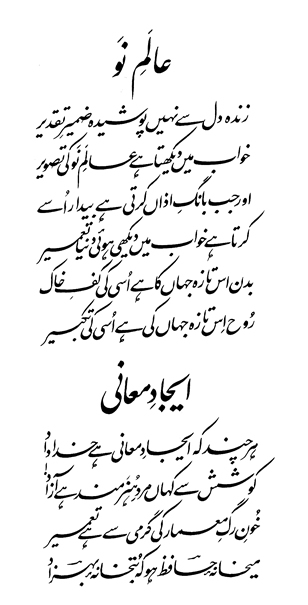 عالَمِ نَو
زندہ دل سے نہیں پوشیدہ ضمیرِ تقدیر
خواب میں دیکھتا ہے عالَمِ نَو کی تصویر
اور جب بانگِ اذاں کرتی ہے بیدار اُسے
کرتا ہے خواب میں دیکھی ہوئی دنیا تعمیر
بدن اس تازہ جہاں کا ہے اُسی کی کفِ خاک
رُوح اس تازہ جہاں کی ہے اُسی کی تکبیر
ایجادِ معانی
ہر چند کہ ایجادِ معانی ہے خدا داد
کوشش سے کہاں مردِ ہُنر مند ہے آزاد
خُونِ رگِ معمار کی گرمی سے ہے تعمیر
میخانۂ حافظؔ ہو کہ بُتخانۂ بہزادؔ